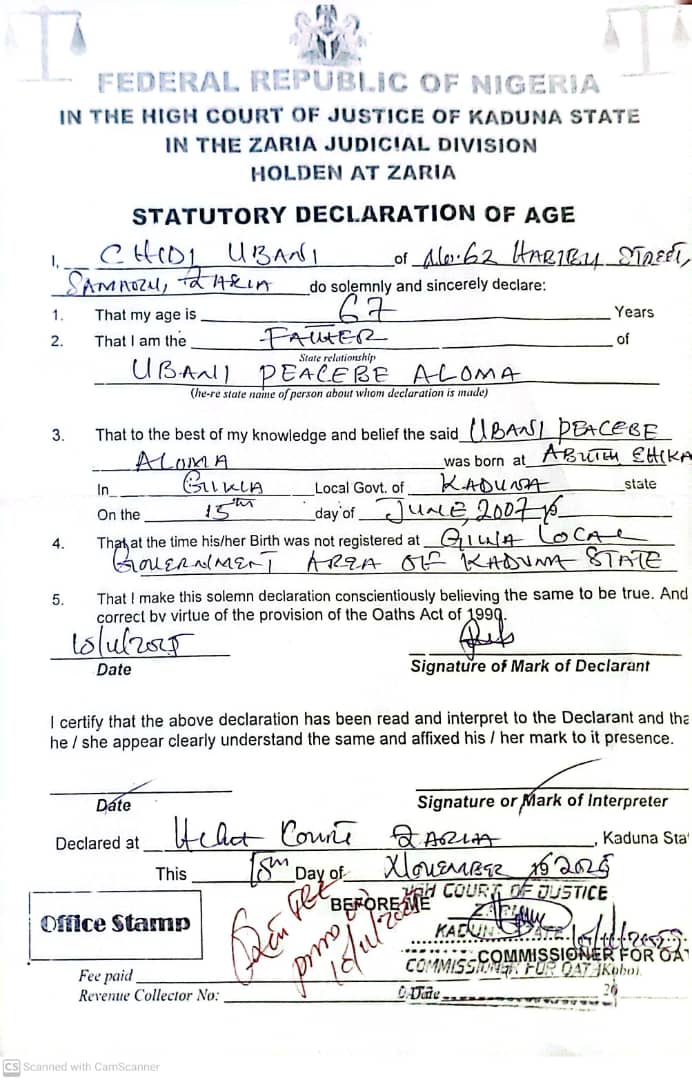 FEDERAL REPUBLIC OF NIGERIA
IN THE HIGH COURT OF JUSTICE OF KADUNA STATE
IN THE ZARIA JUDICIAL DIVISION
HOLDEN AT ZARIA
STATUTORY DECLARATION OF AGE
I, CHIDI UBANI of No. 62 STREET,
SAMARU, ZARIA do solemnly and sincerely declare:
1. That my age is 67 Years
2. That I am the FATHER of
State relationship
UBANI PEACEBE ALOMA
(he-re state name of person about whom declaration is made)
3. That to the best of my knowledge and belief the said UBANI PEACEBE
ALOMA was born at SHIKA
In GIWA Local Govt. of KADUNA state
On the 15th day of JUNE, 2007
4. That at the time his/her Birth was not registered at GIWA LOCAL
GOVERNMENT AREA OF KADUNA STATE
5. That I make this solemn declaration conscientiously believing the same to be true. And
correct by virtue of the provision of the Oaths Act of 1990.
10/11/2025
Date Signature of Mark of Declarant
I certify that the above declaration has been read and interpret to the Declarant and tha
he / she appear clearly understand the same and affixed his / her mark to it presence.
Date Signature or Mark of Interpreter
Declared at COURT ZARIA, Kaduna Sta
This Day of NOVEMBER 2025
BEFORE ME
HIGH COURT OF JUSTICE
Office Stamp
COMMISSIONER FOR OA
COMMISSIONER FOR OATH
Fee paid
Revenue Collector No:
Date
CS Scanned with CamScanner